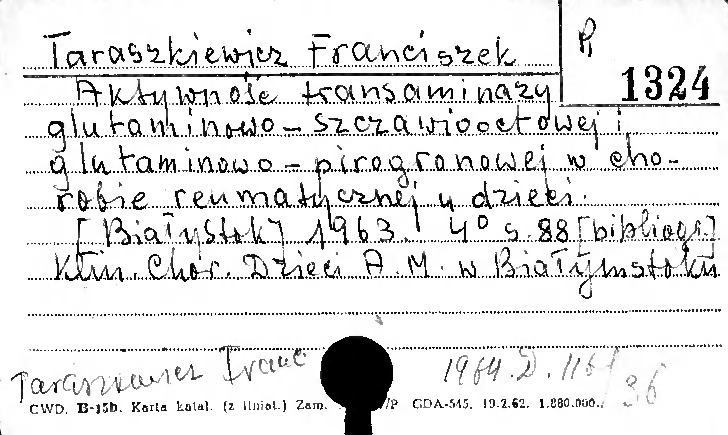 R
1324
Taraszkiewicz Franciszek
Aktywność transaminazy
glutaminowo-szczawiooctowej i
glutaminowo-pirogronowej w cho-
robie reumatycznej u dzieci.
[Białystok] 1963. 4° s. 88 [bibliogr.]
Klin. Chor. Dzieci A.M. w Białymstoku
Taraszkiewicz Franc
1964.D.116/36
CWD. B-15b. Karta katal. (z liniat.) Zam. /P GDA-545. 19.2.62. 1.880.000.